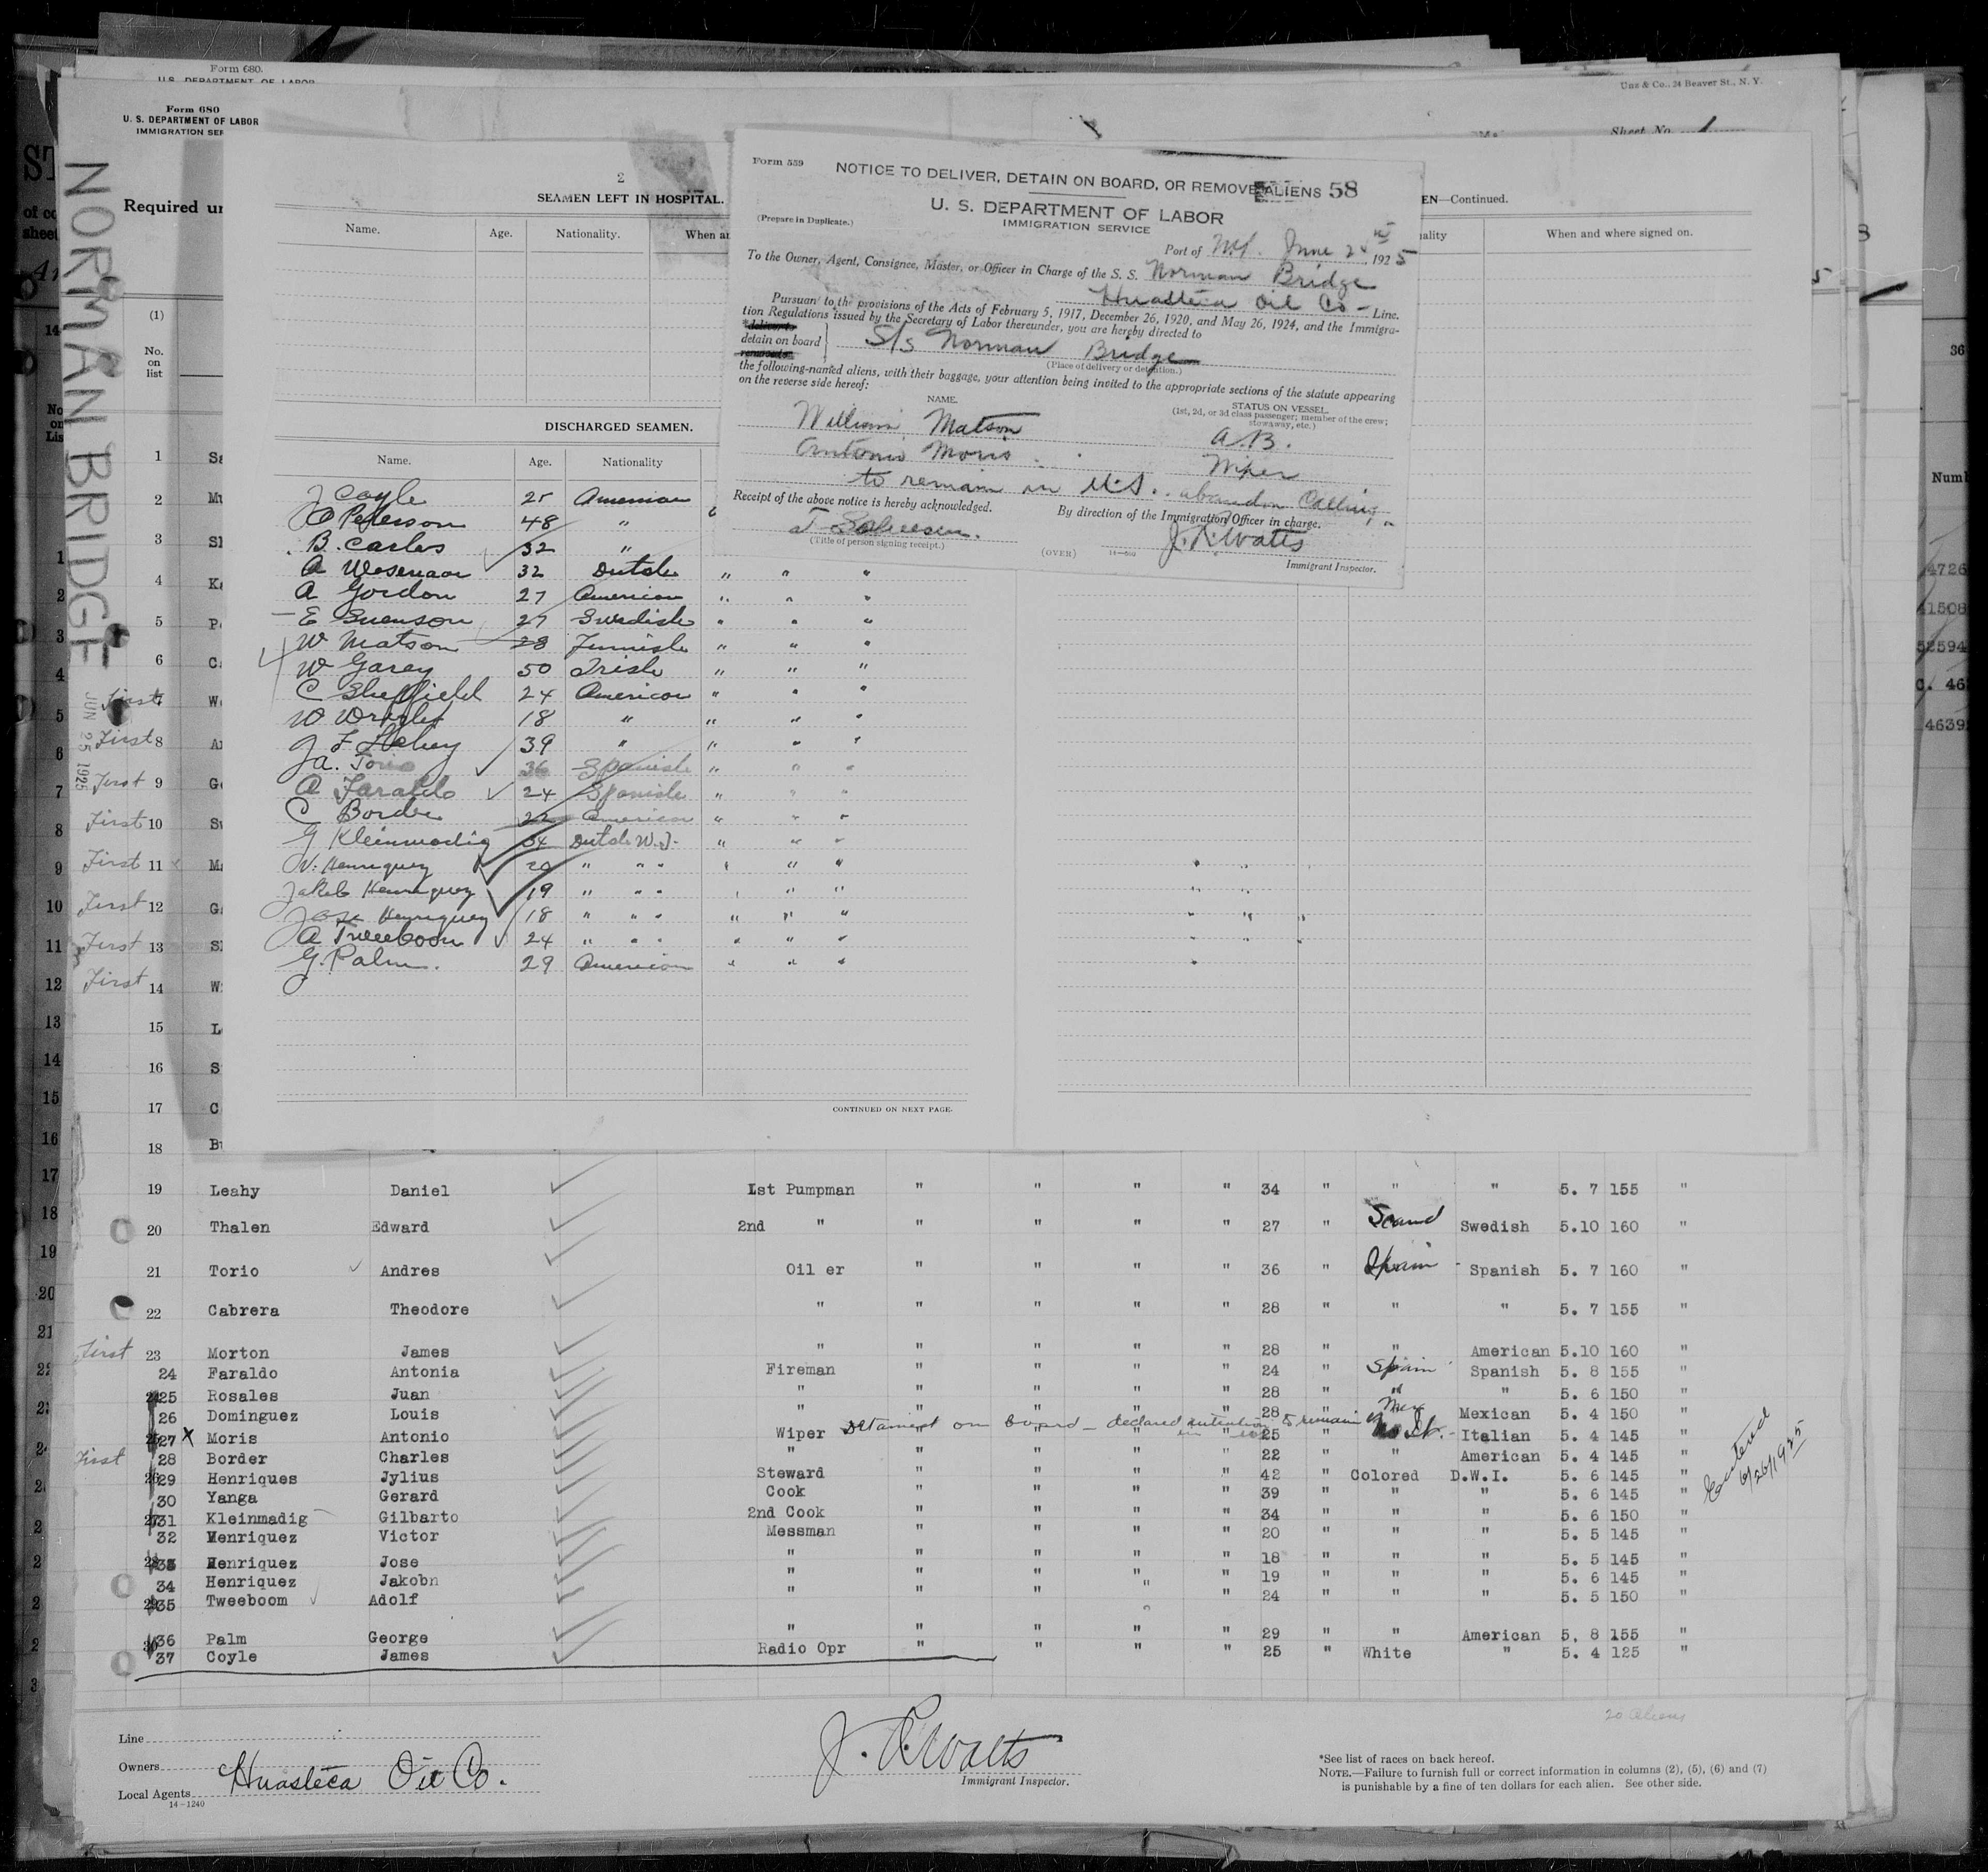 Form 680.
U.S. DEPARTMENT OF LABOR
Uns & Co., 24 Beaver St., N. Y.
Form 680
U. S. DEPARTMENT OF LABOR
IMMIGRATION SER
Sheet No. 1
Required un
NORMAN BRIDGE
JUN 25 1925
(1)
No. on list
2
SEAMEN LEFT IN HOSPITAL.
Name. Age. Nationality. When an
EN—Continued.
ality When and where signed on.
Form 559
NOTICE TO DELIVER, DETAIN ON BOARD, OR REMOVE ALIENS 58
U. S. DEPARTMENT OF LABOR
IMMIGRATION SERVICE
(Prepare in Duplicate.)
Port of N.Y. June 24 1925
To the Owner, Agent, Consignee, Master, or Officer in Charge of the S. S. Norman Bridge
Huasteca Oil Co - Line.
Pursuant to the provisions of the Acts of February 5, 1917, December 26, 1920, and May 26, 1924, and the Immigra-
tion Regulations issued by the Secretary of Labor thereunder, you are hereby directed to
detain on board S/S Norman Bridge
(Place of delivery or detention.)
the following-named aliens, with their baggage, your attention being invited to the appropriate sections of the statute appearing
on the reverse side hereof:
NAME. STATUS ON VESSEL.
(1st, 2d, or 3d class passenger; member of the crew; stowaway, etc.)
William Matson A.B.
Antonio Moris Wiper
to remain in U.S. abandon Calling
Receipt of the above notice is hereby acknowledged. By direction of the Immigration Officer in charge.
J.R. Watts
(Title of person signing receipt.) (OVER) Immigrant Inspector.
DISCHARGED SEAMEN.
Name. Age. Nationality
J Coyle 25 American
O Peterson 48 "
B. Carles 32 "
A Wosenaar 32 Dutch " " "
A Gordon 27 American " " "
E Swenson 27 Swedish " " "
W Matson 28 Finnish " " "
W Garey 50 Irish " " "
C Sheffield 24 American " " "
W Wright 18 " " " "
39 " " " "
A. Torio 36 Spanish " " "
A Faraldo 24 Spanish " " "
C Border 22 American " " "
G Kleinmadig 34 Dutch W.I. " " "
V. Henriquez 20 " " " " " "
Jakob Henriquez 19 " " " " " "
Jose Henriquez 18 " " " " " "
A Tweeboom 24 " " " " " "
G. Palm. 29 American " " "
CONTINUED ON NEXT PAGE.
1 Sa
2 Mu
3 Sh
4 Ka
5 Pe
6 Ca
First 7 We
First 8 An
First 9 Ge
First 10 Sw
First 11 Ma
First 12 Ga
First 13 Sh
First 14 W
15 L
16 S
17 C
18 B
19 Leahy Daniel 1st Pumpman " " " " 34 " " " 5. 7 155 "
20 Thalen Edward 2nd " " " " " 27 " Scand Swedish 5.10 160 "
21 Torio Andres Oil er " " " " 36 " Spain Spanish 5. 7 160 "
22 Cabrera Theodore " " " " " 28 " " " 5. 7 155 "
First 23 Morton James " " " " " 28 " " American 5.10 160 "
24 Faraldo Antonia Fireman " " " " 24 " Spain Spanish 5. 8 155 "
25 Rosales Juan " " " " " 28 " " " 5. 6 150 "
26 Dominguez Louis " " " " " 28 " Mex Mexican 5. 4 150 "
Detained on board - declared intention to remain in
27 X Moris Antonio Wiper " " " " 25 " Italian 5. 4 145 "
First 28 Border Charles " " " " " 22 " " American 5. 4 145 "
29 Henriques Jylius Steward " " " " 42 " Colored D.W.I. 5. 6 145 "
30 Yanga Gerard Cook " " " " 39 " " " 5. 6 145 "
31 Kleinmadig Gilbarto 2nd Cook " " " " 34 " " " 5. 6 150 "
32 Henriquez Victor Messman " " " " 20 " " " 5. 5 145 "
33 Henriquez Jose " " " " " 18 " " " 5. 5 145 "
34 Henriquez Jakobn " " " " " 19 " " " 5. 6 145 "
35 Tweeboom Adolf " " " " " 24 " " " 5. 5 150 "
36 Palm George " " " " " 29 " " American 5. 8 155 "
37 Coyle James Radio Opr " " " " 25 " White " 5. 4 125 "
Entered 6/26/1925
20 aliens
Line
Owners
Local Agents
Huasteca Oil Co.
14-1240
J. R. Watts
Immigrant Inspector.
*See list of races on back hereof.
NOTE.—Failure to furnish full or correct information in columns (2), (5), (6) and (7)
is punishable by a fine of ten dollars for each alien. See other side.